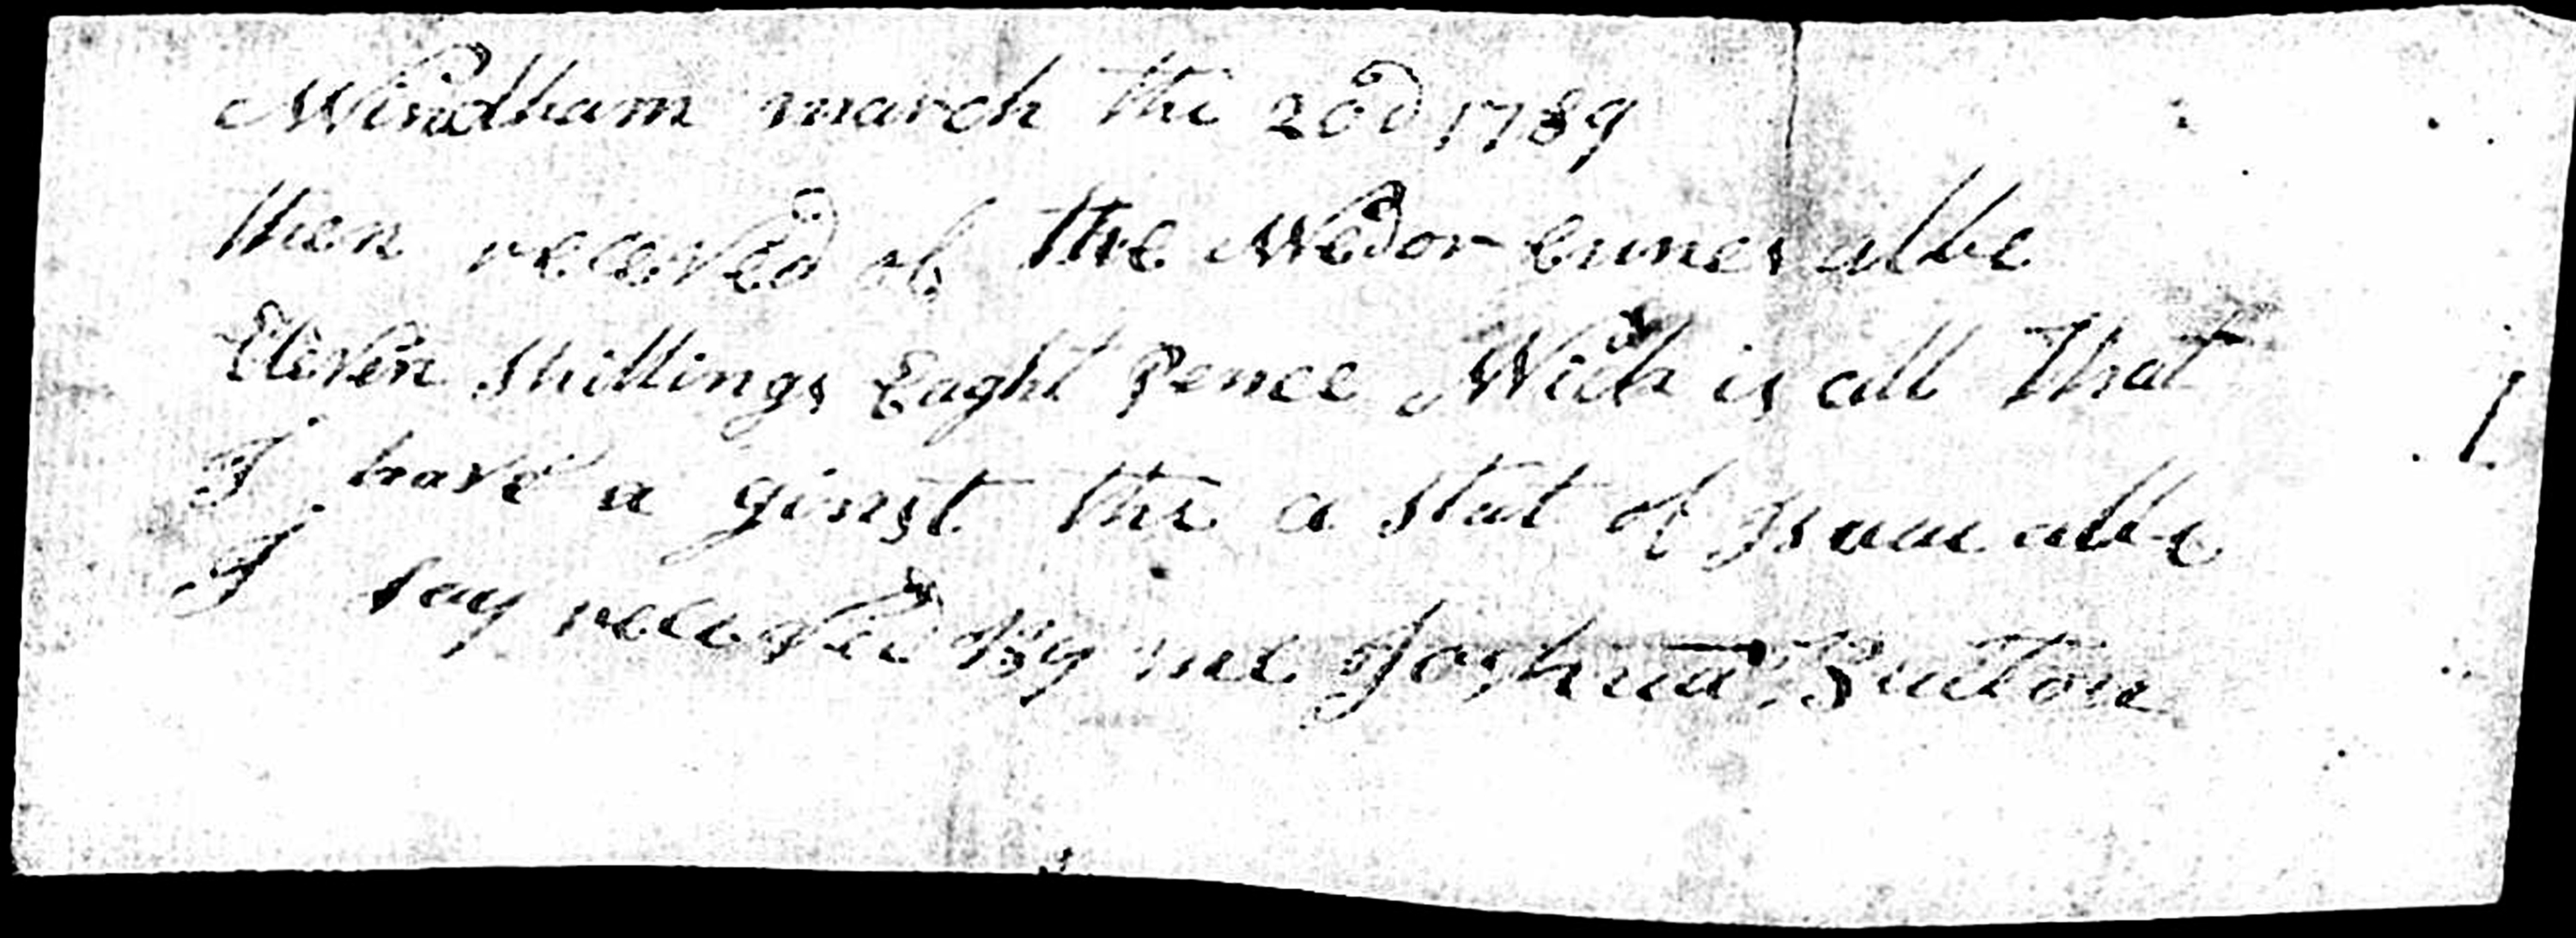 Windham march the 20d 1789
then receved of the Wedor Eunes albe
Eleven shillings Eaght Pence Wich is all That
I have a ginst the a stat of Isaac albe
I say receved By me Joshua Luton